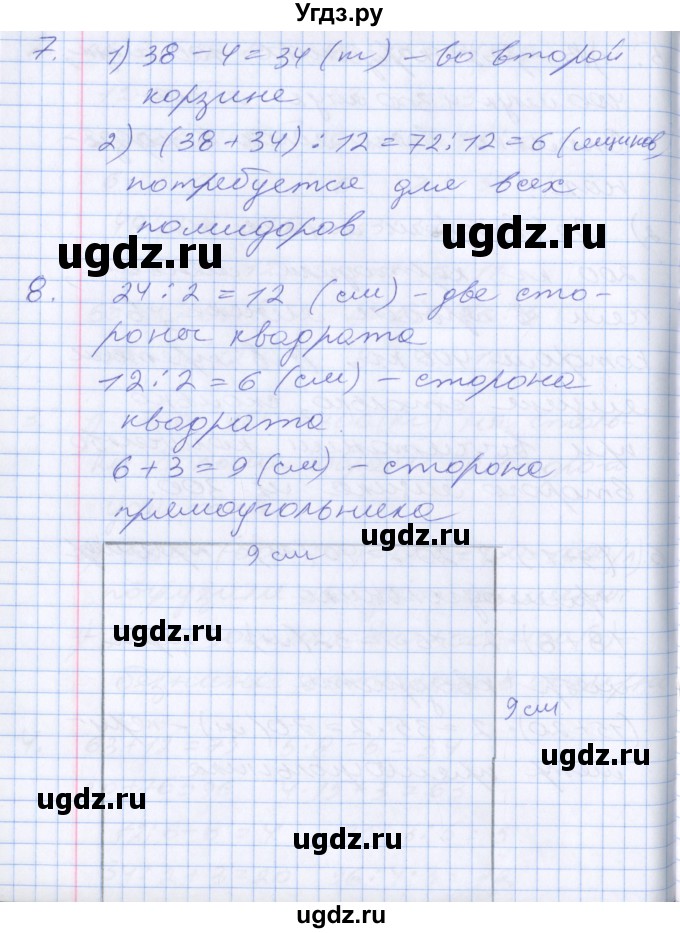 Угдз.ру
7. 1) 38 - 4 = 34 (т) - во второй
корзине
2) (38 + 34) : 12 = 72 : 12 = 6 (ящиков)
потребуется для всех
помидоров
ugdz.ru ugdz.ru
8. 24 : 2 = 12 (см) - две сто-
роны квадрата
ugdz.ru
12 : 2 = 6 (см) - сторона
квадрата.
6 + 3 = 9 (см) - сторона
прямоугольника
ugdz.ru
9 см
ugdz.ru
9 см
ugdz.ru
ugdz.ru
ugdz.ru
ugdz.ru